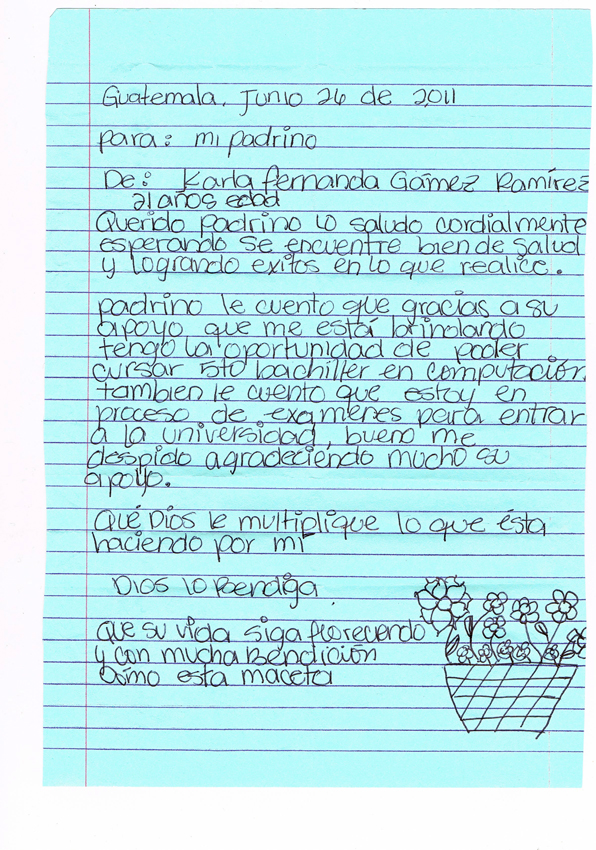 Guatemala, Junio 26 de 2011
para: mi padrino
De: Karla fernanda Gámez Ramírez
21 años edad
Querido padrino lo saludo cordialmente
esperando se encuentre bien de salud
y logrando exitos en lo que realice.
padrino le cuento que gracias a su
apoyo que me está brindando
tengo la oportunidad de poder
cursar 5to bachiller en computación,
tambien le cuento que estoy en
proceso de exámenes para entrar
a la universidad, bueno me
despido agradeciendo mucho su
apoyo.
Qué Dios le multiplique lo que ésta
haciendo por mi
Dios lo Bendiga.
Que su vida siga floreciendo
y con mucha Bendición
cómo esta maceta